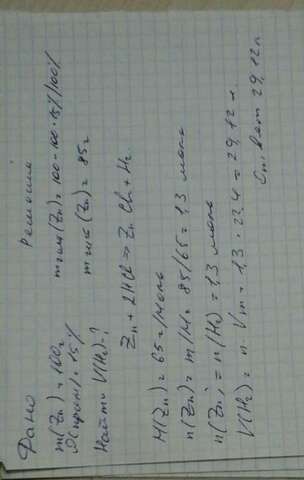 Дано
m(Zn) = 100г
Я(прим) = 15%
Найти V(H₂)-?
Решение
m чист (Zn) = 100 - 100 · 15%/100%
m чист (Zn) = 85г
Zn + 2HCl => ZnCl₂ + H₂
M(Zn) = 65 г/моль
n(Zn) = m/M = 85/65 = 1,3 моль
n(Zn) = n(H₂) = 1,3 моль
V(H₂) = n · Vm = 1,3 · 22,4 = 29,12 л.
Ответ 29,12 л